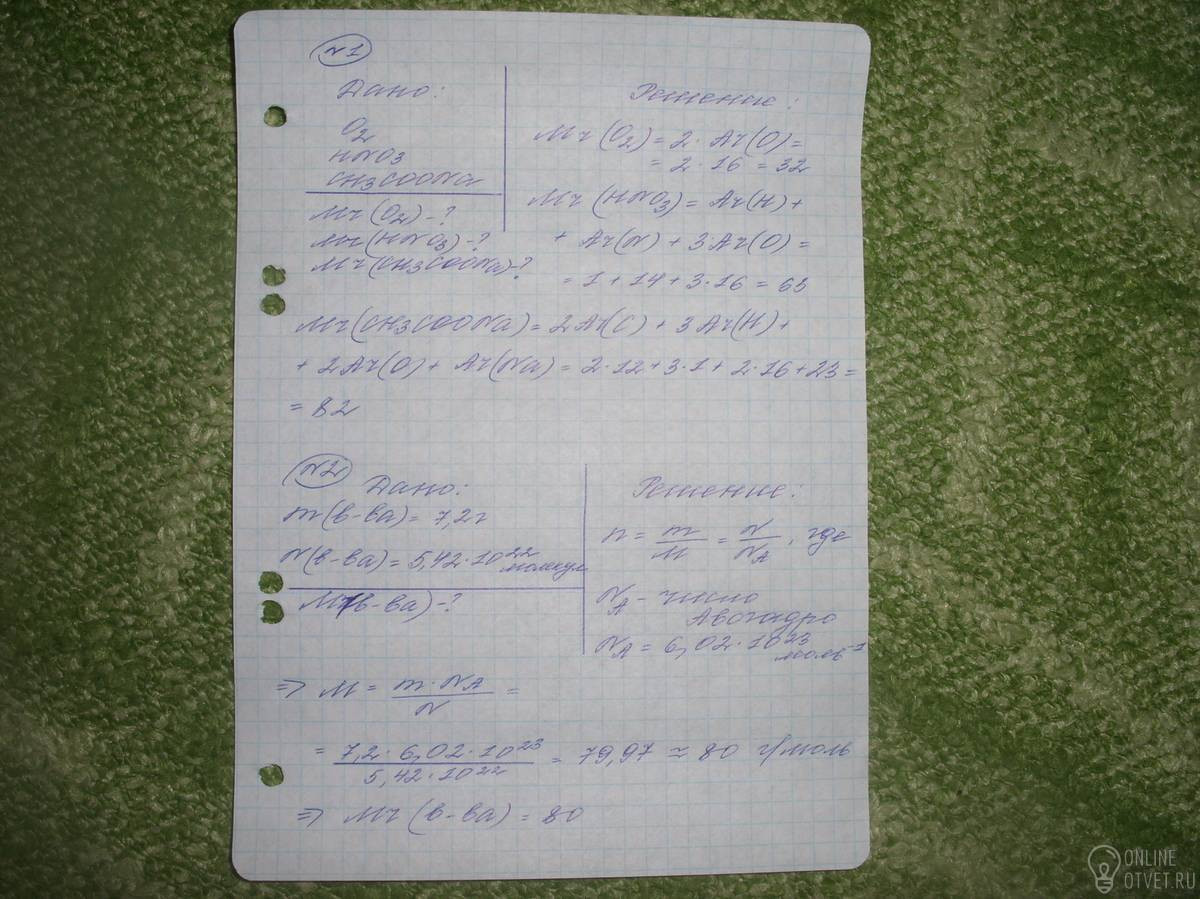 №1
Дано:
O2
HNO3
CH3COONa
Mr(O2)-?
Mr(HNO3)-?
Mr(CH3COONa)-?
Решение:
Mr(O2) = 2·Ar(O) =
= 2·16 = 32
Mr(HNO3) = Ar(H) +
+ Ar(N) + 3Ar(O) =
= 1 + 14 + 3·16 = 63
Mr(CH3COONa) = 2Ar(C) + 3Ar(H) +
+ 2Ar(O) + Ar(Na) = 2·12 + 3·1 + 2·16 + 23 =
= 82
№2
Дано:
m(в-ва) = 7,2г
N(в-ва) = 5,42·10^22 молекул
M(в-ва)-?
Решение:
n = m/M = N/NA, где
NA - число
Авогадро
NA = 6,02·10^23 моль^-1
=> M = m·NA/N =
= 7,2·6,02·10^23/5,42·10^22 = 79,97 ≈ 80 г/моль
=> Mr(в-ва) = 80
ONLINE
OTVET.RU